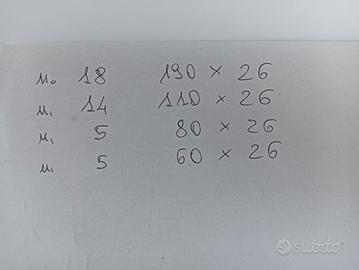 n. 18 190 × 26
n. 14 110 × 26
n. 5 80 × 26
n. 5 60 × 26
subito.it